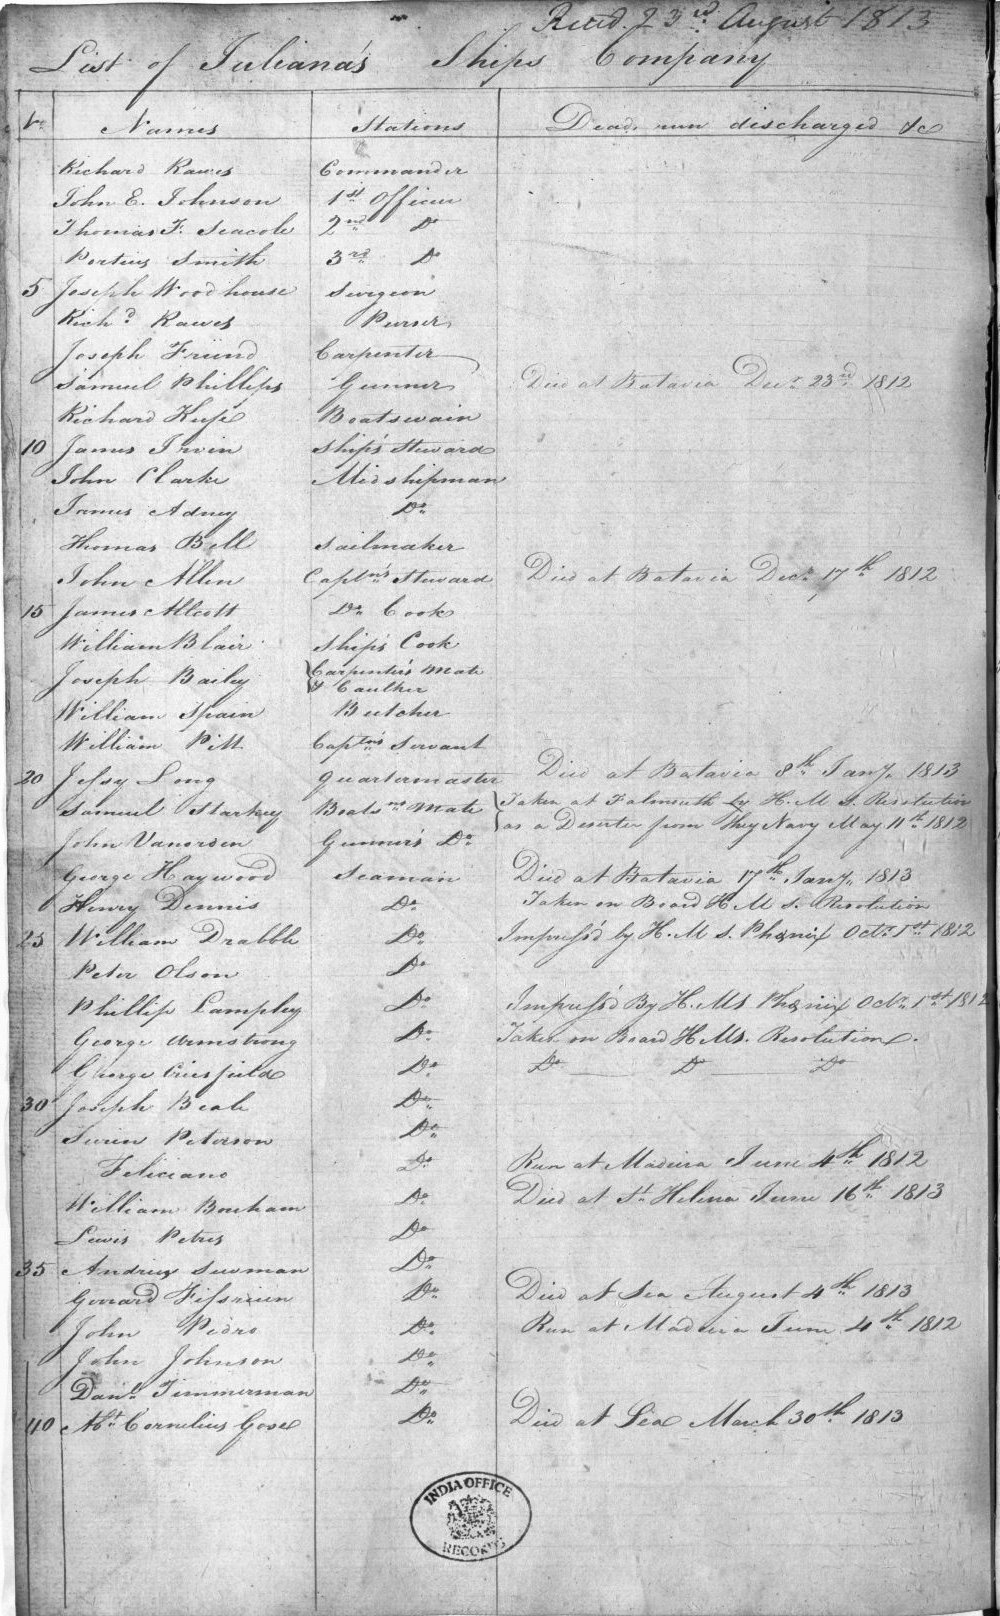 Recd. 23rd August 1813
List of Juliana's Ships Company
No. Names Stations Dead, run discharged &c
Richard Rawes Commander
John E. Johnson 1st Officer
Thomas F. Seacole 2nd Do
Porteus Smith 3rd Do
5 Joseph Woodhouse Surgeon
Richd Rawes Purser
Joseph Friend Carpenter
Samuel Phillips Gunner Died at Batavia Decr 23rd 1812
Richard Boatswain
10 James Irvin Ship's Steward
John Clarke Midshipman
James Adney Do
Thomas Bell Sailmaker
John Allen Captn's Steward Died at Batavia Decr 17th 1812
15 James Allcott Do Cook
William Blair Ship's Cook
Joseph Bailey Carpenter's Mate
& Caulker
William Spain Butcher
William Pitt Captn's Servant
20 Jessy Long Quartermaster Died at Batavia 8th Jany. 1813
Samuel Starkey Boatsns Mate Taken at Falmouth by H. M S. Resolution
as a Deserter from They Navy May 11th 1812
John Vanorden Gunner's Do
George Haywood Seaman Died at Batavia 17th Jany. 1813
Henry Dennis Do Taken on Board H M S. Resolution
25 William Drabble Do Impress'd by H. M S. Phœnix Octr 1st 1812
Peter Olson Do
Phillip Lampley Do Impress'd By H. MS Phœnix Octr 1st 1812
George Armstrong Do Taken on Board H MS. Resolution.
George Criesfield Do Do Do Do
30 Joseph Beale Do
Swien Peterson Do
Feliciano Do Run at Madeira June 4th 1812
William Bonham Do Died at St Helena June 16th 1813
Lewis Petres Do
35 Andrew Suvman Do
Gerrard Do Died at Sea August 4th 1813
John Pedro Do Run at Madeira June 4th 1812
John Johnson Do
Danl. Timmerman Do
40 Mt. Cornelius Gose Do Died at Sea March 30th 1813
INDIA OFFICE
RECORDS